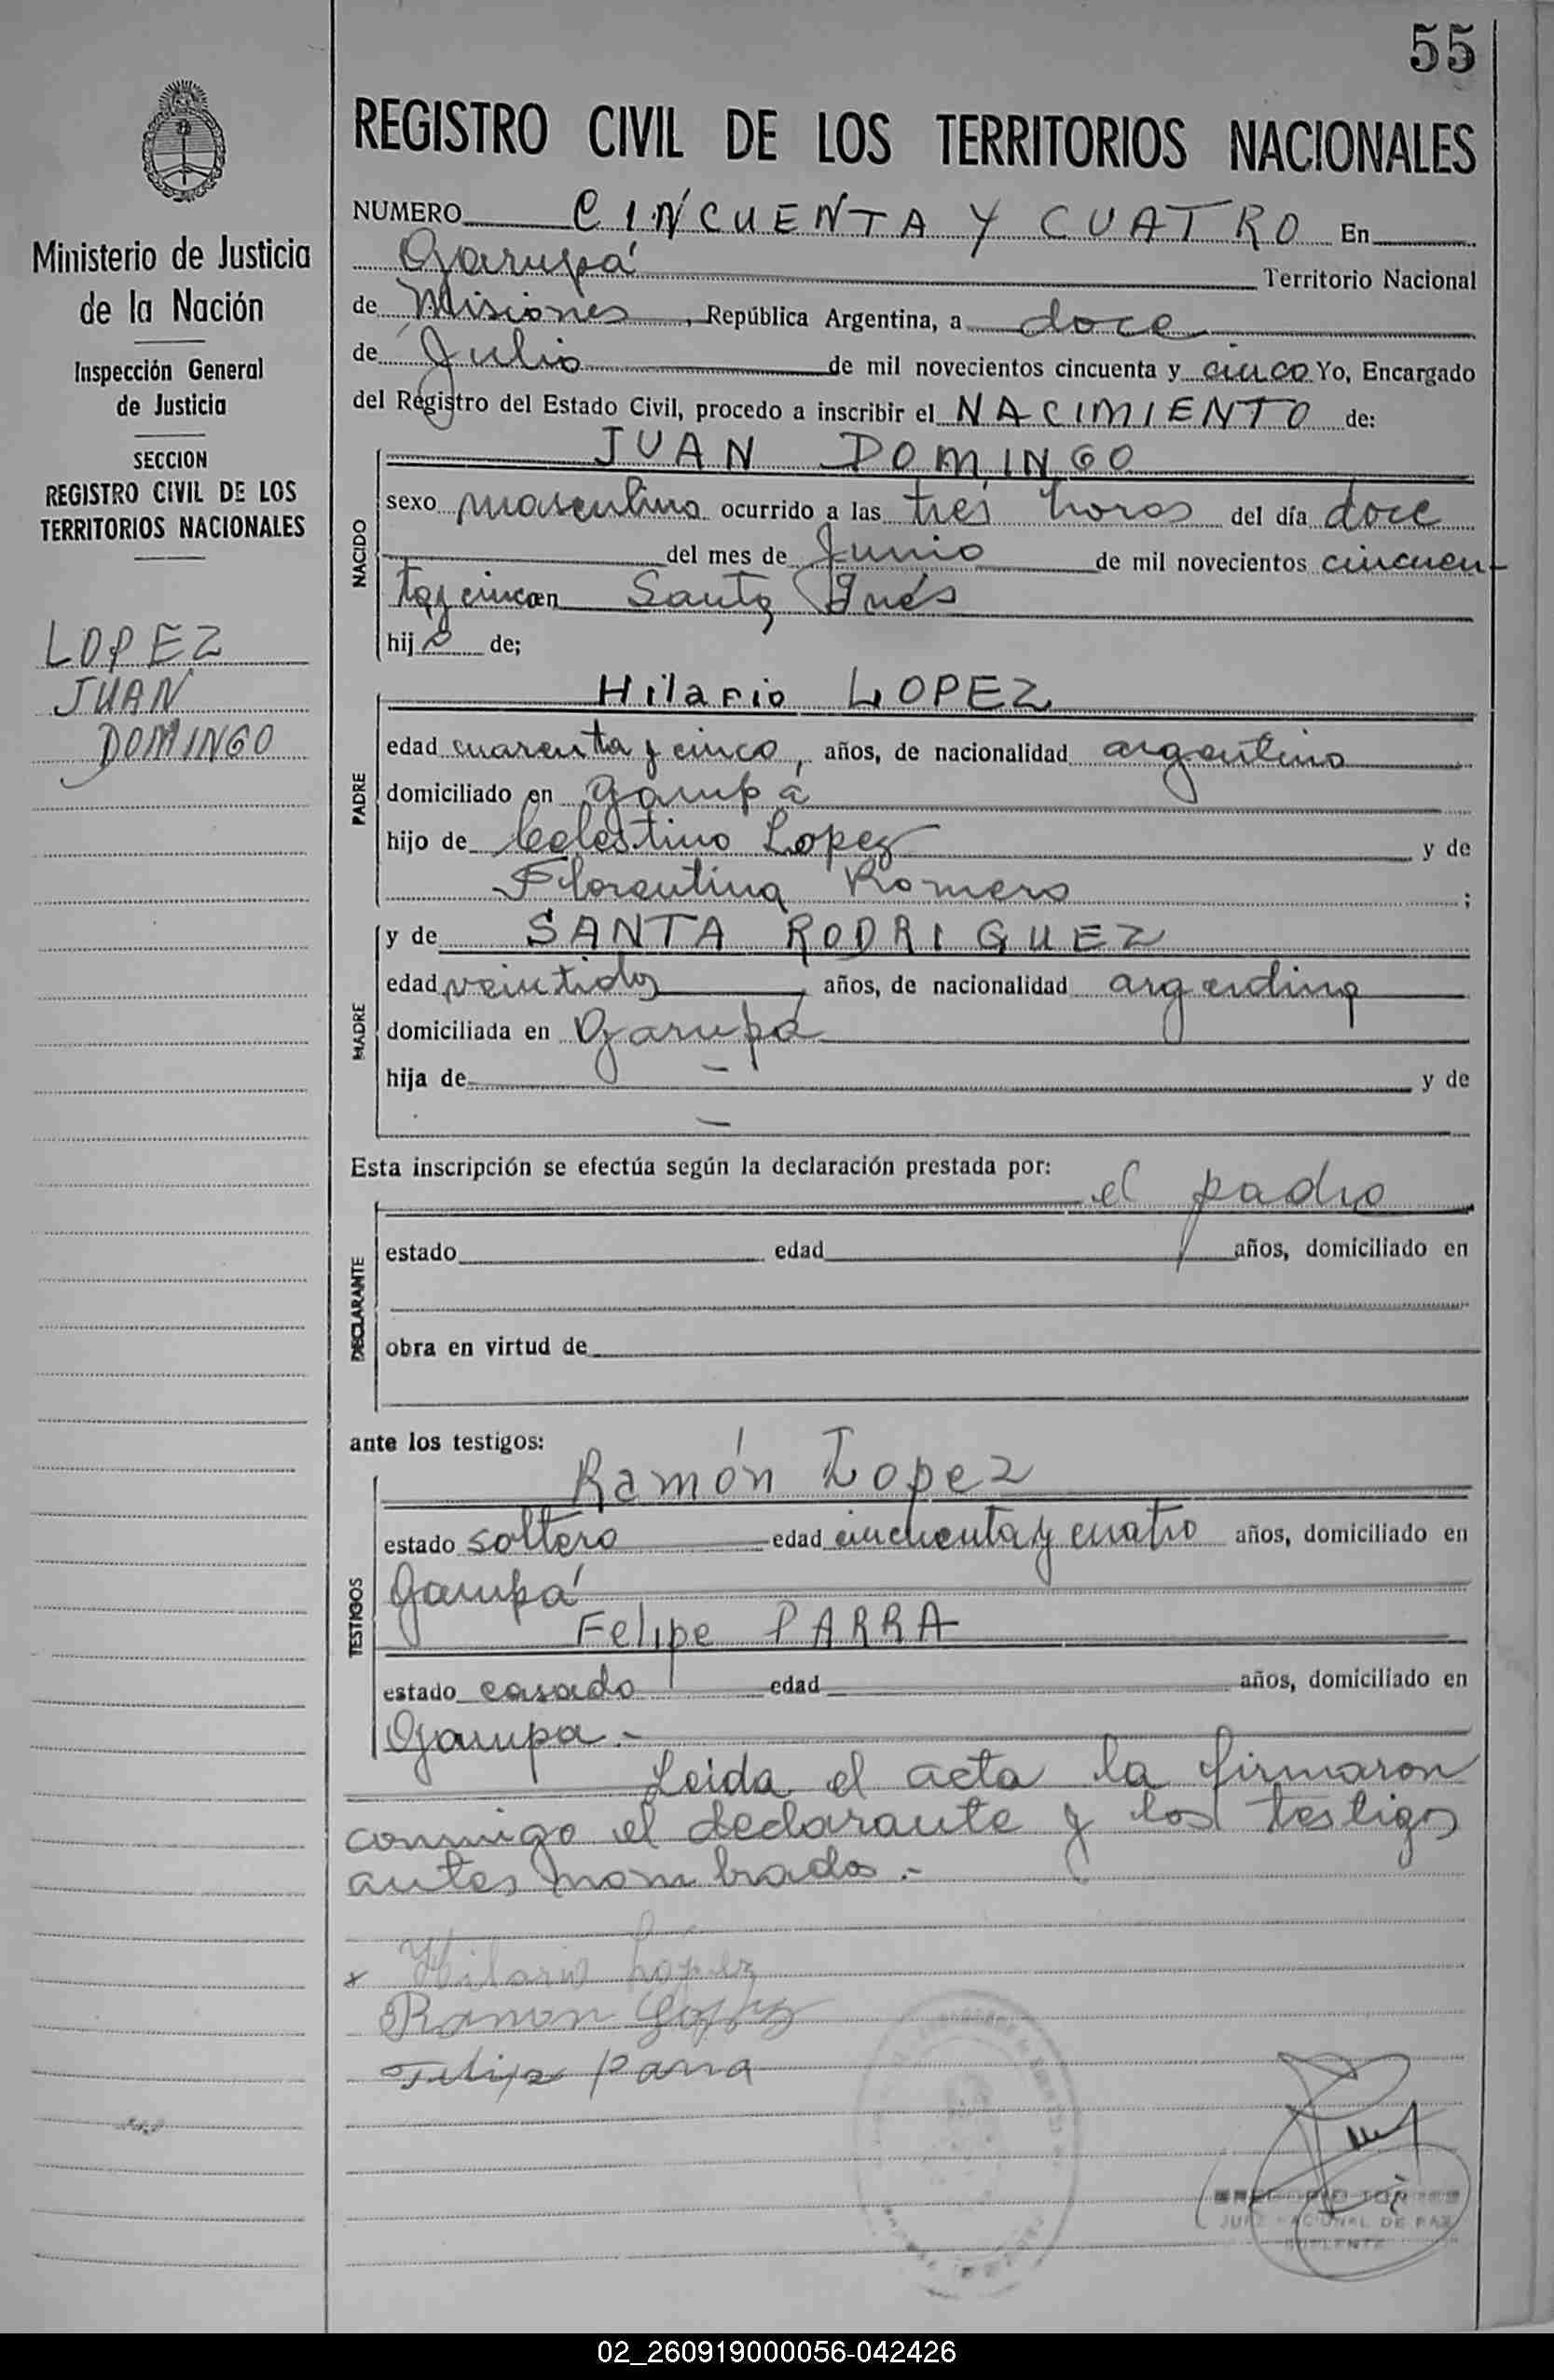 55
REGISTRO CIVIL DE LOS TERRITORIOS NACIONALES
Ministerio de Justicia
de la Nación
Inspección General
de Justicia
SECCION
REGISTRO CIVIL DE LOS
TERRITORIOS NACIONALES
LOPEZ
JUAN
DOMINGO
NUMERO CINCUENTA Y CUATRO En
Garupá Territorio Nacional
de Misiones, República Argentina, a doce
de Julio de mil novecientos cincuenta y cinco Yo, Encargado
del Registro del Estado Civil, procedo a inscribir el NACIMIENTO de:
NACIDO
JUAN DOMINGO
sexo masculino ocurrido a las tres horas del día doce
del mes de Junio de mil novecientos cincuen-
ta y cinco en Santa Inés
hijo de;
PADRE
Hilario LOPEZ
edad cuarenta y cinco, años, de nacionalidad argentino
domiciliado en Garupá
hijo de Celestino Lopez y de
Florentina Romero ;
MADRE
y de SANTA RODRIGUEZ
edad veintidos, años, de nacionalidad argentina
domiciliada en Garupá
hija de - y de
-
Esta inscripción se efectúa según la declaración prestada por:
el padre
DECLARANTE
estado edad años, domiciliado en
obra en virtud de
ante los testigos:
TESTIGOS
Ramón Lopez
estado soltero edad cincuenta y cuatro años, domiciliado en
Garupá
Felipe PARRA
estado casado edad años, domiciliado en
Garupa.-
Leida el acta la firmaron
conmigo el declarante y los testigos
antes nombrados.-
x Hilario Lopez
Ramon Lopez
Felipe Parra
JUEZ NACIONAL DE PAZ
SUPLENTE
02_260919000056-042426